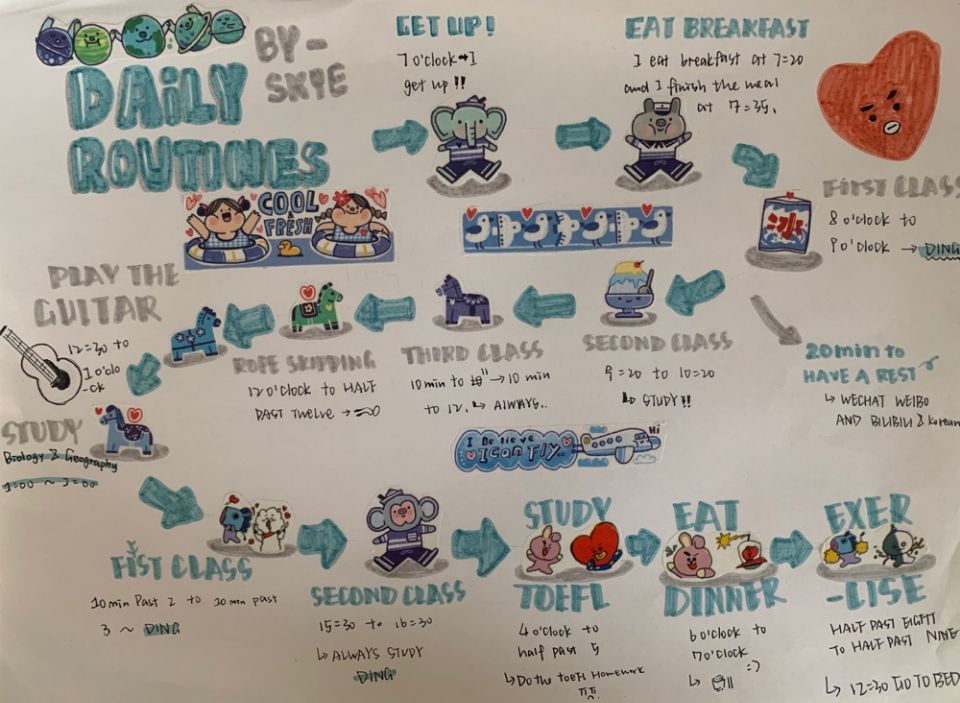 DAILY
ROUTINES
BY-
SKYE
GET UP!
7 o'clock → I
get up!!
EAT BREAKFAST
I eat breakfast at 7=20
and I finish the meal
at 7=35.
FIRST CLASS
8 o'clock to
9 o'clock → DING
COOL
&
FRESH
冰
20min to
HAVE A REST
↳ WECHAT WEIBO
AND BILIBILI & Korean
SECOND CLASS
9=20 to 10=20
↳ STUDY!!
THIRD CLASS
10 min to 11 → 10 min
to 12. ↳ ALWAYS..
ROPE SKIPPING
12 o'clock to HALF
PAST Twelve →
PLAY THE
GUITAR
12=30 to
1 o'clo
-ck
STUDY
Biology & Geography
1=00 ~ 2=00
I Believe
I can Fly.
Hi
FIST CLASS
r
10min Past 2 to 10min past
3 ~ DING
SECOND CLASS
15=30 to 16=30
↳ ALWAYS STUDY
DING
STUDY
TOEFL
4 o'clock to
half past 5
↳ Do the toefl Homework
EAT
DINNER
6 o'clock to
7 o'clock
:)
EXER
-CISE
HALF PAST EIGHT
TO HALF PAST NINE
↳ 12=30 GO TO BED